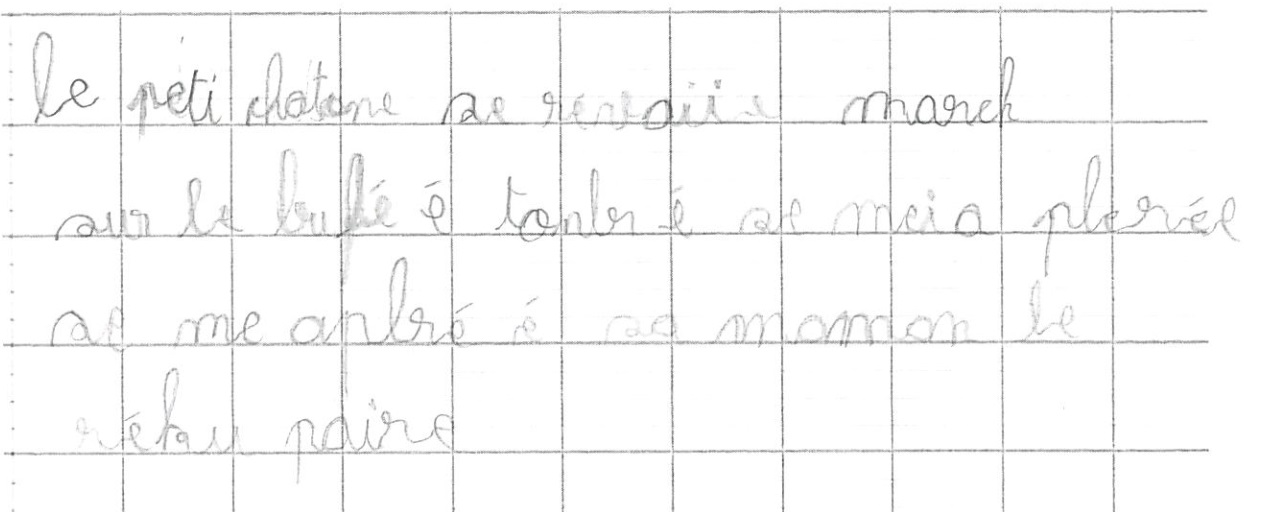 le peti chatone se révaiie march
sur le bufé é tonbr é se meia plerée
se me anbré é sa maman le
réku paire